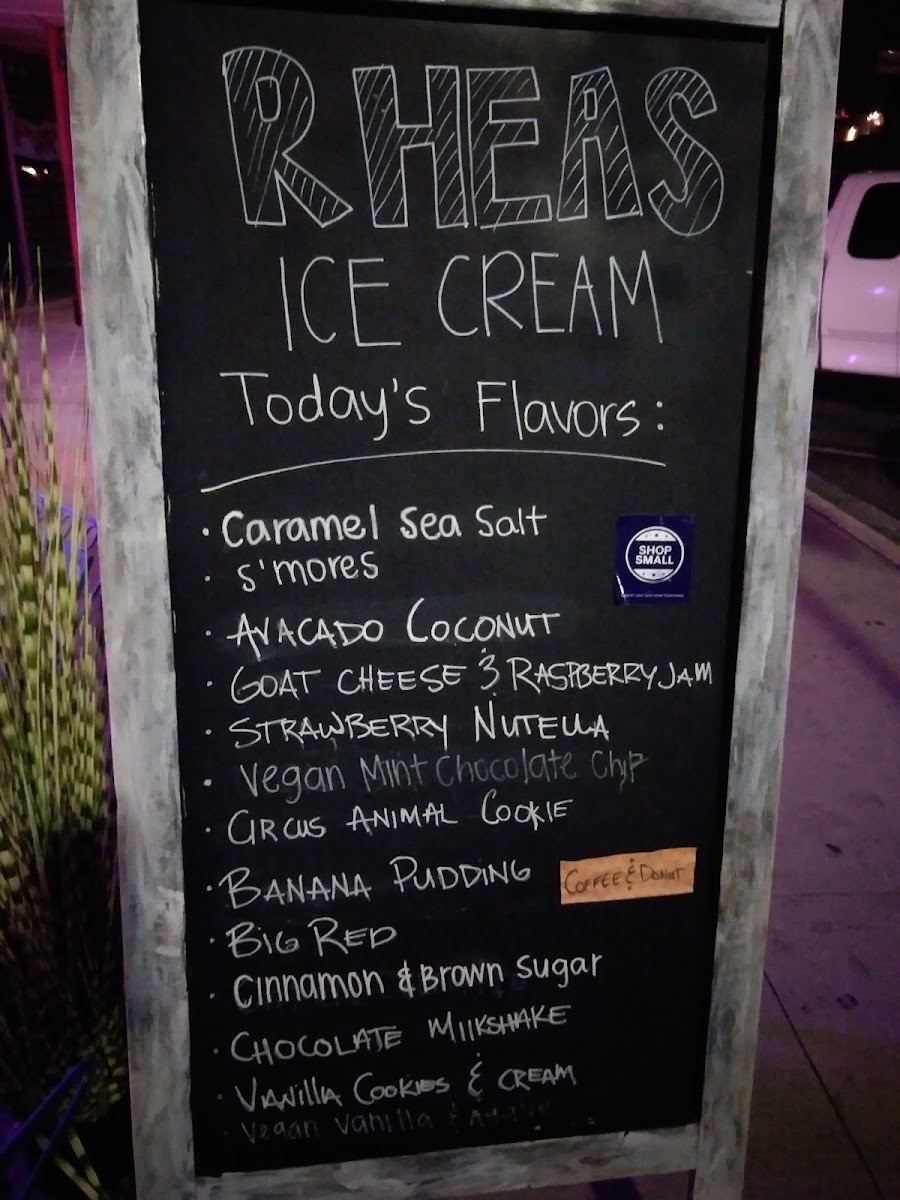 RHEAS
ICE CREAM
Today's Flavors:
· Caramel Sea Salt
· S'mores
SHOP
SMALL
· AVACADO COCONUT
· GOAT CHEESE & RASPBERRY JAM
· STRAWBERRY NUTELLA
· Vegan Mint Chocolate Chip
· CIRCUS ANIMAL COOKIE
· BANANA PUDDING
COFFEE & DONUT
· BIG RED
· Cinnamon & Brown Sugar
· CHOCOLATE MILKSHAKE
· VANILLA COOKIES & CREAM
· Vegan Vanilla &